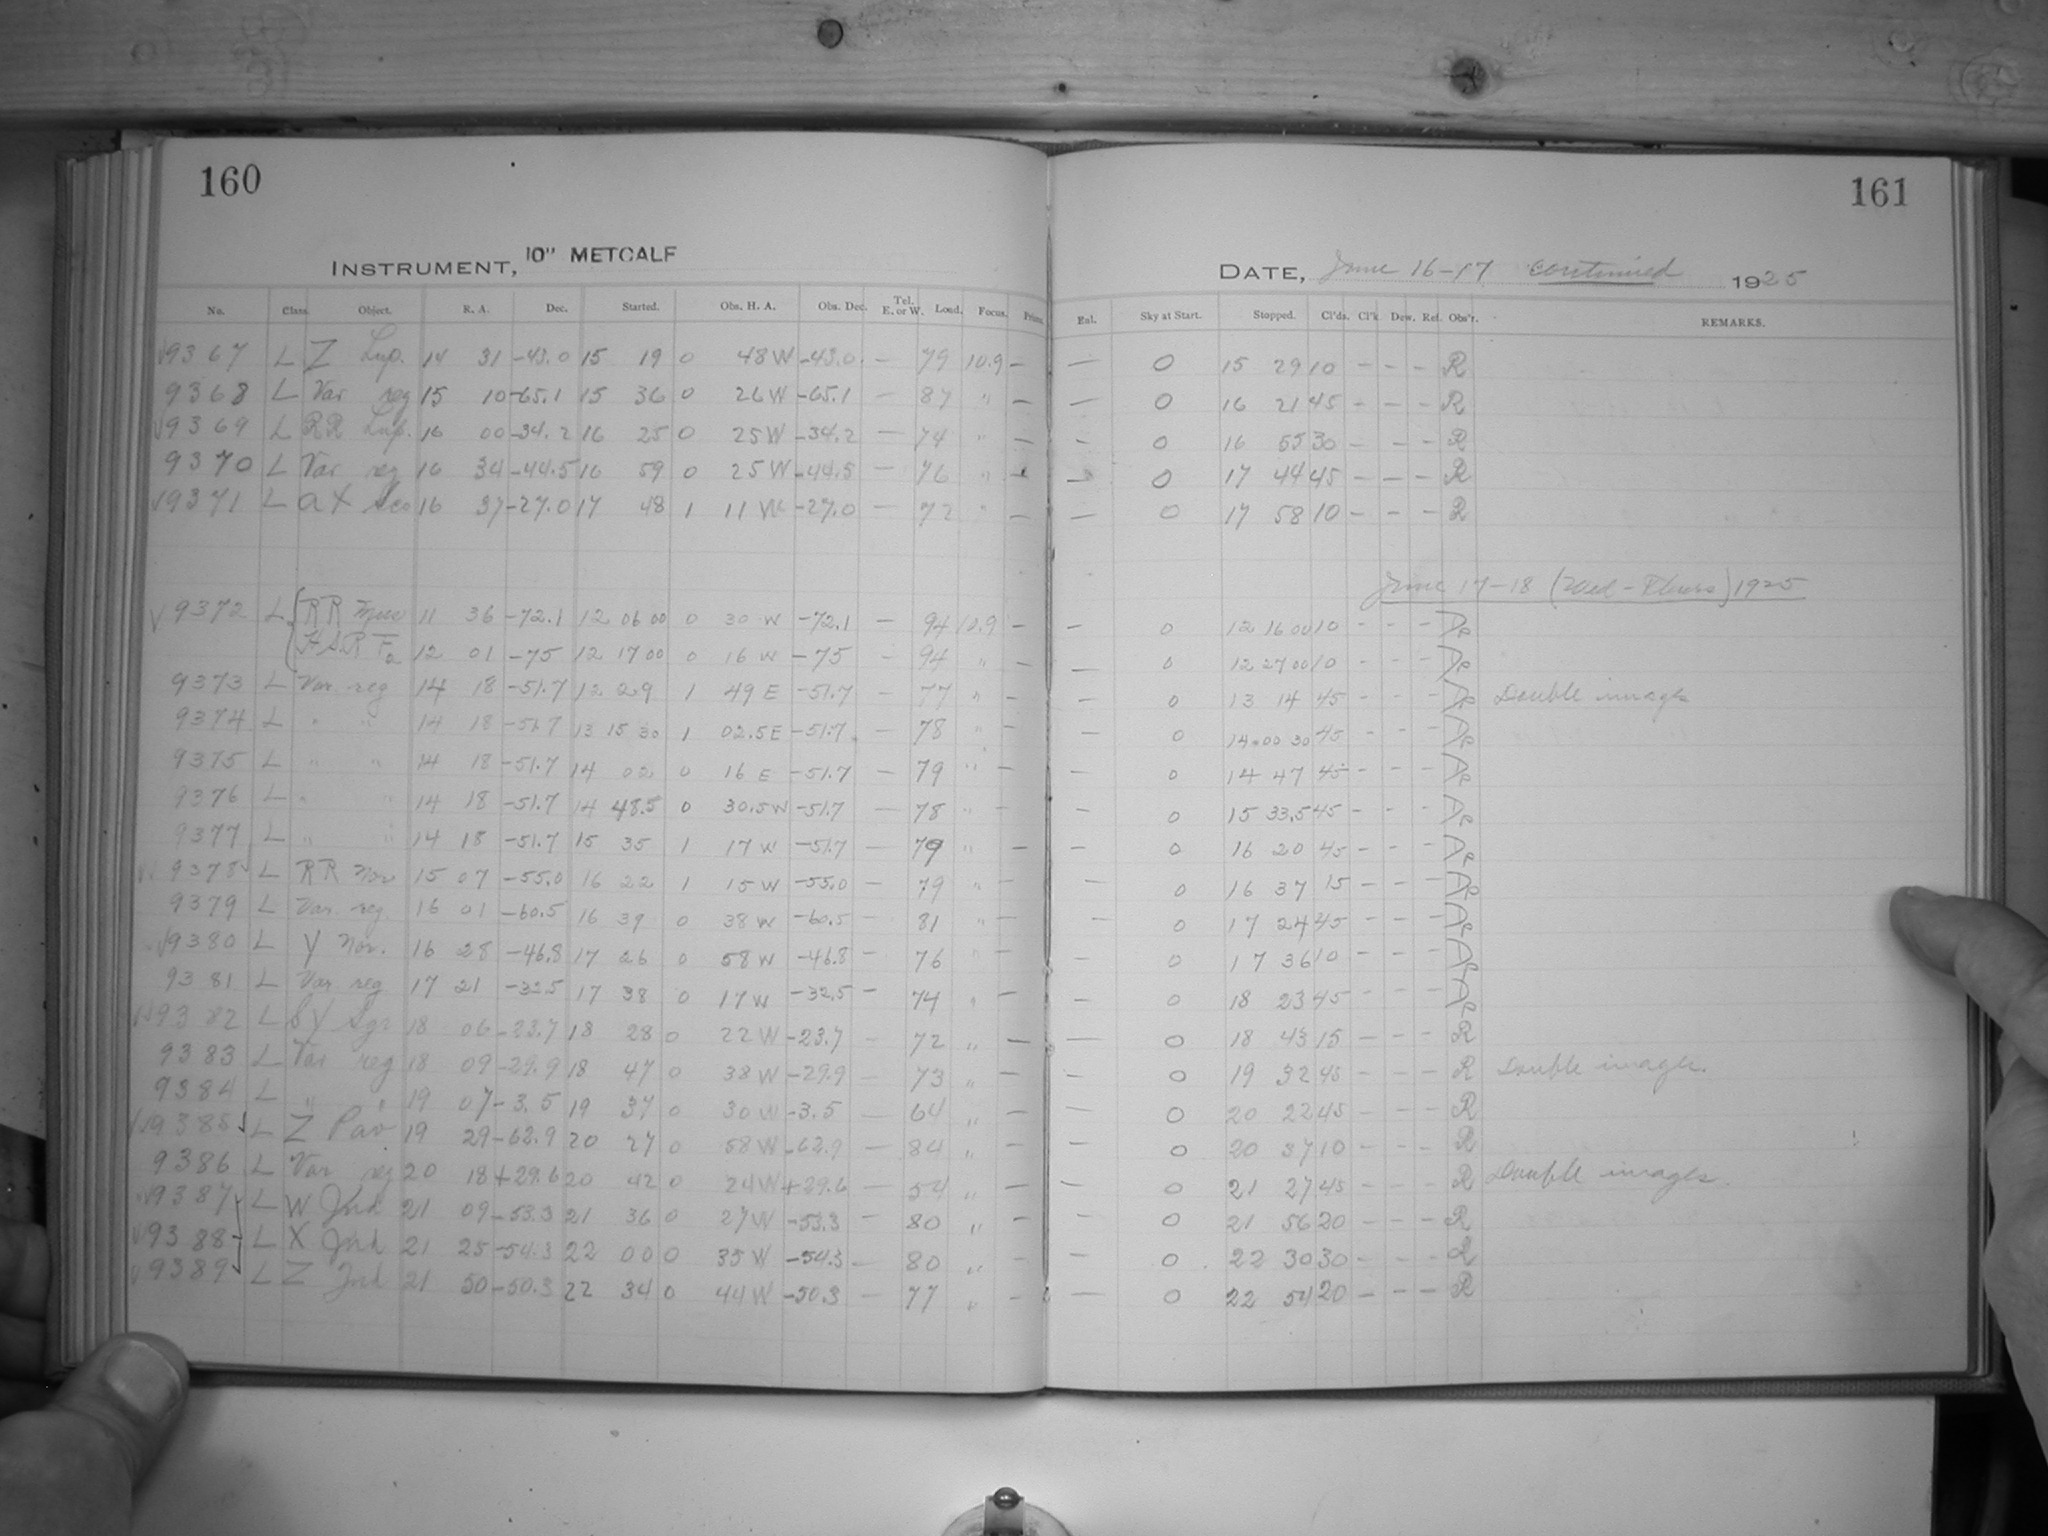 160
161
INSTRUMENT, 10" METCALF
DATE, June 16-17 continued 1925
No. Class. Object. R. A. Dec. Started. Obs. H. A. Obs. Dec. Tel. E. or W. Load. Focus. Prism. Enl. Sky at Start. Stopped. Cl'ds. Cl'k. Dew. Ref. Obs'r. REMARKS.
√9367 L Z Lup. 14 31 -43.0 15 19 0 48 W -43.0 — 79 10.9 — — 0 15 29 10 - - - R
9368 L Var reg 15 10 -65.1 15 36 0 26 W -65.1 — 87 " — — 0 16 21 45 - - - R
√9369 L RR Lup. 16 00 -34.2 16 25 0 25 W -34.2 — 74 " — — 0 16 55 30 - - - R
9370 L Var reg 16 34 -44.5 16 59 0 25 W -44.5 — 76 " — 0 17 44 45 - - - R
√9371 L aX Sco 16 37 -27.0 17 48 1 11 W -27.0 — 72 " — — 0 17 58 10 - - - R
June 17-18 (Wed - Thurs) 1925
√9372 L RR Mus 11 36 -72.1 12 06 00 0 30 W -72.1 — 94 10.9 — — 0 12 16 00 10 - - -
12 01 -75 12 17 00 0 16 W -75 - 94 " — — 0 12 27 00 10 - - -
9373 L Var reg 14 18 -51.7 12 29 1 49 E -51.7 - 77 " — — 0 13 14 45 - - - Double images
9374 L " " 14 18 -51.7 13 15 30 1 02.5 E -51.7 - 78 " — — 0 14 00 30 45 - - -
9375 L " " 14 18 -51.7 14 02 0 16 E -51.7 - 79 " — — 0 14 47 45 - - -
9376 L " " 14 18 -51.7 14 48.5 0 30.5 W -51.7 — 78 " — — 0 15 33.5 45 - - -
9377 L " " 14 18 -51.7 15 35 1 17 W -51.7 — 79 " — — 0 16 20 45 - - -
√9378 L RR Nor 15 07 -55.0 16 22 1 15 W -55.0 — 79 " — — 0 16 37 15 - - -
9379 L Var. reg. 16 01 -60.5 16 39 0 38 W -60.5 — 81 " — — 0 17 24 45 - - -
√9380 L Y Nor. 16 28 -46.8 17 26 0 58 W -46.8 - 76 " — — 0 17 36 10 - - -
9381 L Var reg 17 21 -32.5 17 38 0 17 W -32.5 - 74 " — — 0 18 23 45 - - -
9382 L SY Sgr 18 06 -23.7 18 28 0 22 W -23.7 - 72 " — — 0 18 43 15 - - - R
9383 L Var reg 18 09 -29.9 18 47 0 38 W -29.9 — 73 " — — 0 19 32 45 - - - R Double images.
9384 L " " 19 07 -3.5 19 37 0 30 W -3.5 — 64 " — — 0 20 22 45 - - - R
√9385 L Z Pav 19 29 -62.9 20 27 0 58 W -62.9 — 84 " — — 0 20 37 10 - - - R
9386 L Var reg 20 18 +29.6 20 42 0 24 W +29.6 — 54 " — — 0 21 27 45 - - - R Double images.
√9387 L W Ind 21 09 -53.3 21 36 0 27 W -53.3 — 80 " — — 0 21 56 20 - - - R
√9388 L X Ind 21 25 -54.3 22 00 0 35 W -54.3 — 80 " — — 0 22 30 30 - - - R
√9389 L Z Ind 21 50 -50.3 22 34 0 44 W -50.3 — 77 " — — 0 22 54 20 - - - R